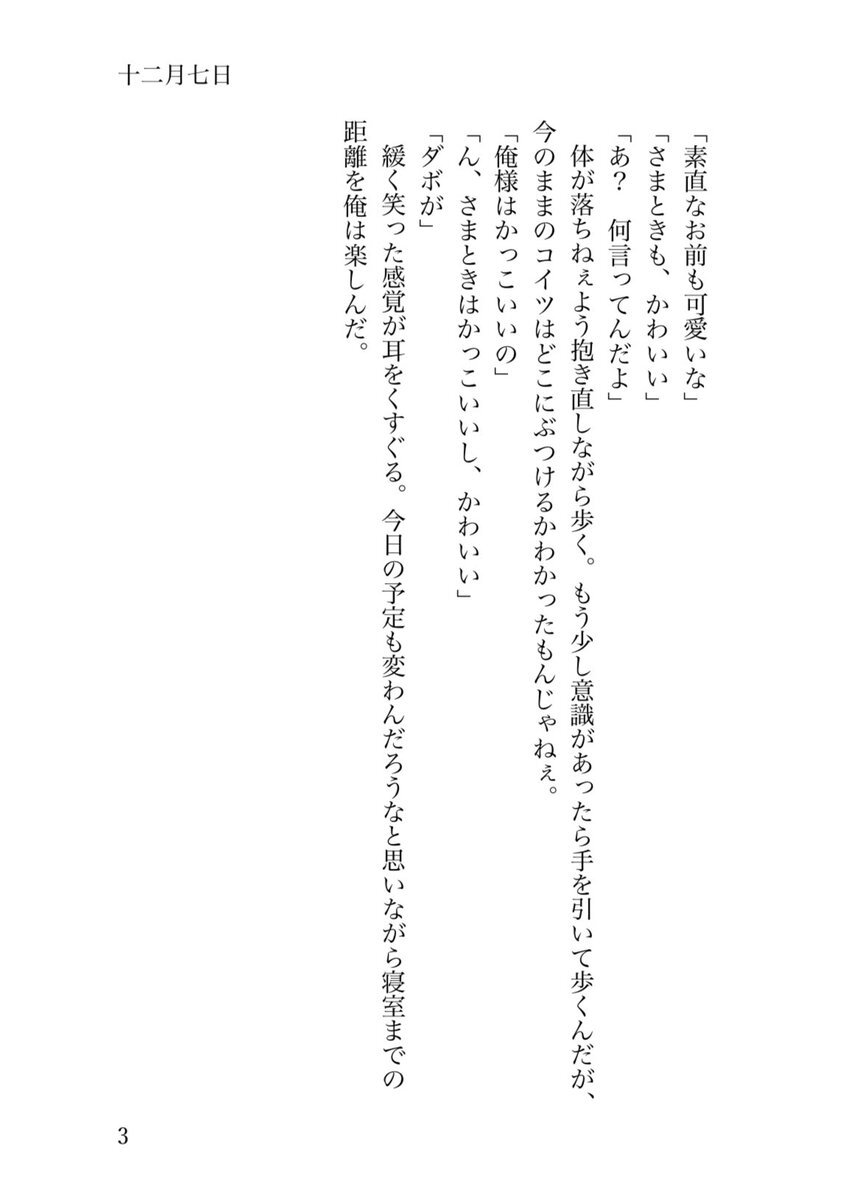 十二月七日
「素直なお前も可愛いな」
「さまときも、かわいい」
「あ？　何言ってんだよ」
　体が落ちねぇよう抱き直しながら歩く。もう少し意識があったら手を引いて歩くんだが、
今のままのコイツはどこにぶつけるかわかったもんじゃねぇ。
「俺様はかっこいいの」
「ん、さまときはかっこいいし、かわいい」
「ダボが」
　緩く笑った感覚が耳をくすぐる。今日の予定も変わんだろうなと思いながら寝室までの
距離を俺は楽しんだ。
3